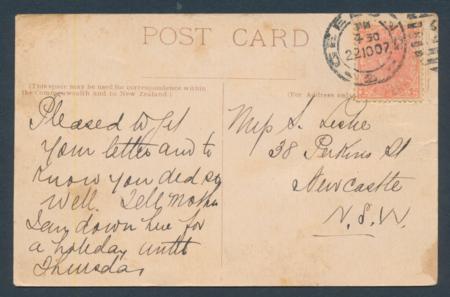 POST CARD
(This space may be used for correspondence within
the Commonwealth and to New Zealand.)
(For Address only
PM
4 30
22 10 07
Pleased to get
your letter and to
know you did so
well. Tell Mother
I am down here for
a holiday until
Thursday
Miss S. Leslie
38 Perkins St
Newcastle
N.S.W.